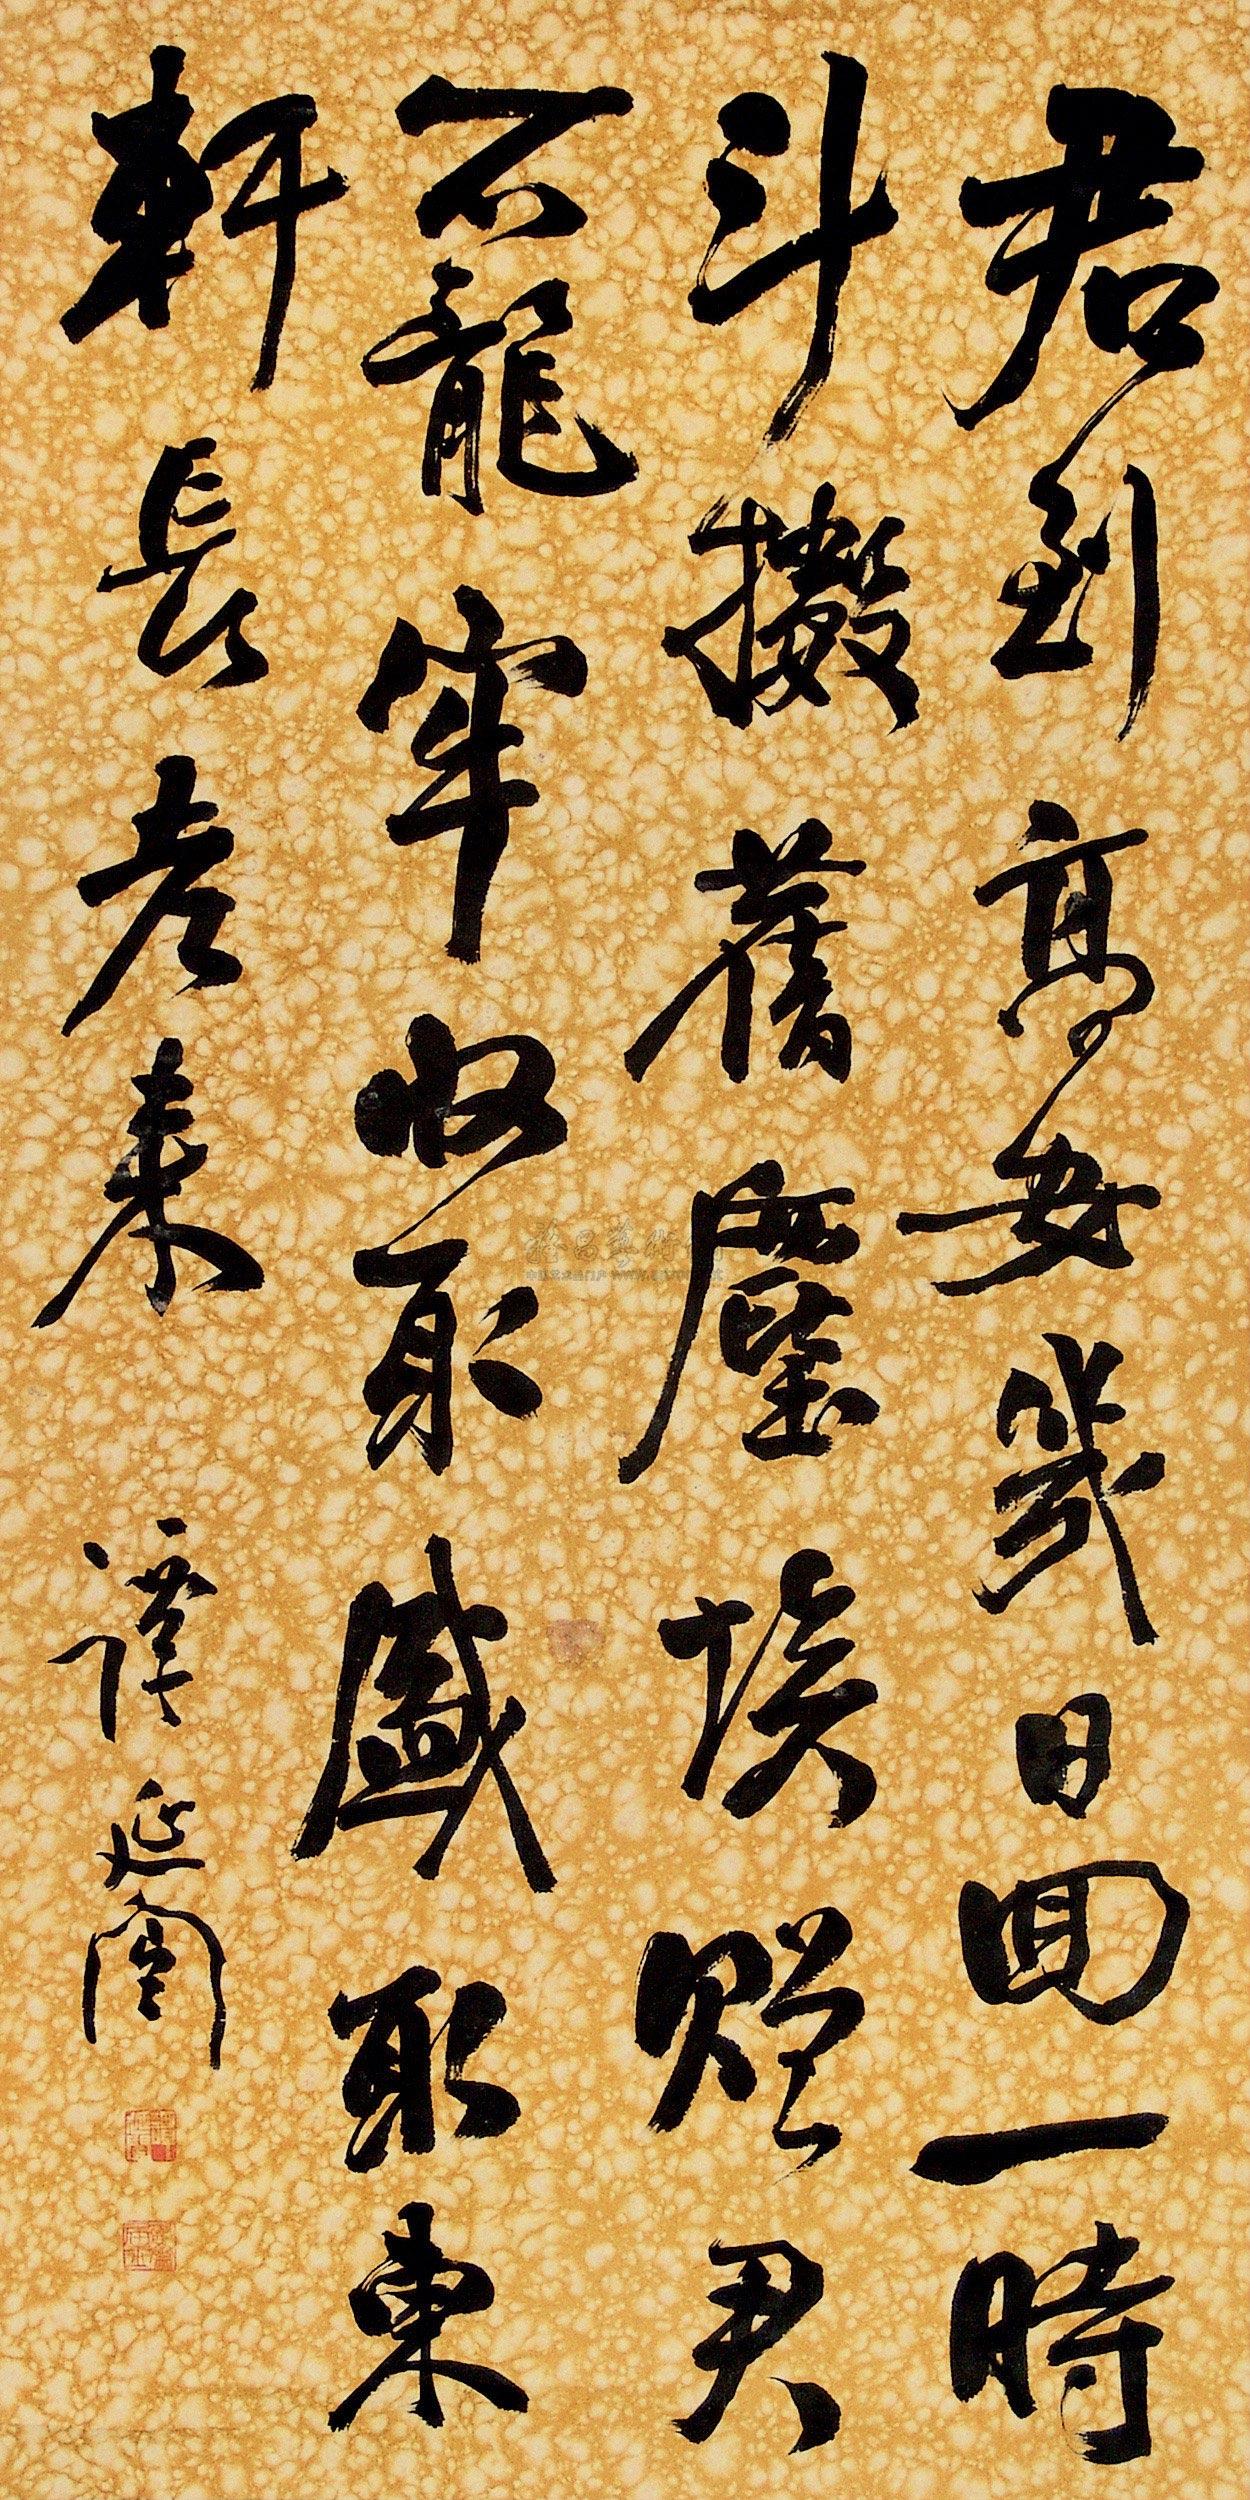 君到高安幾日回一時
斗擻舊塵埃贈君
一籠牢收取盛取東
軒長老來 譚延闓